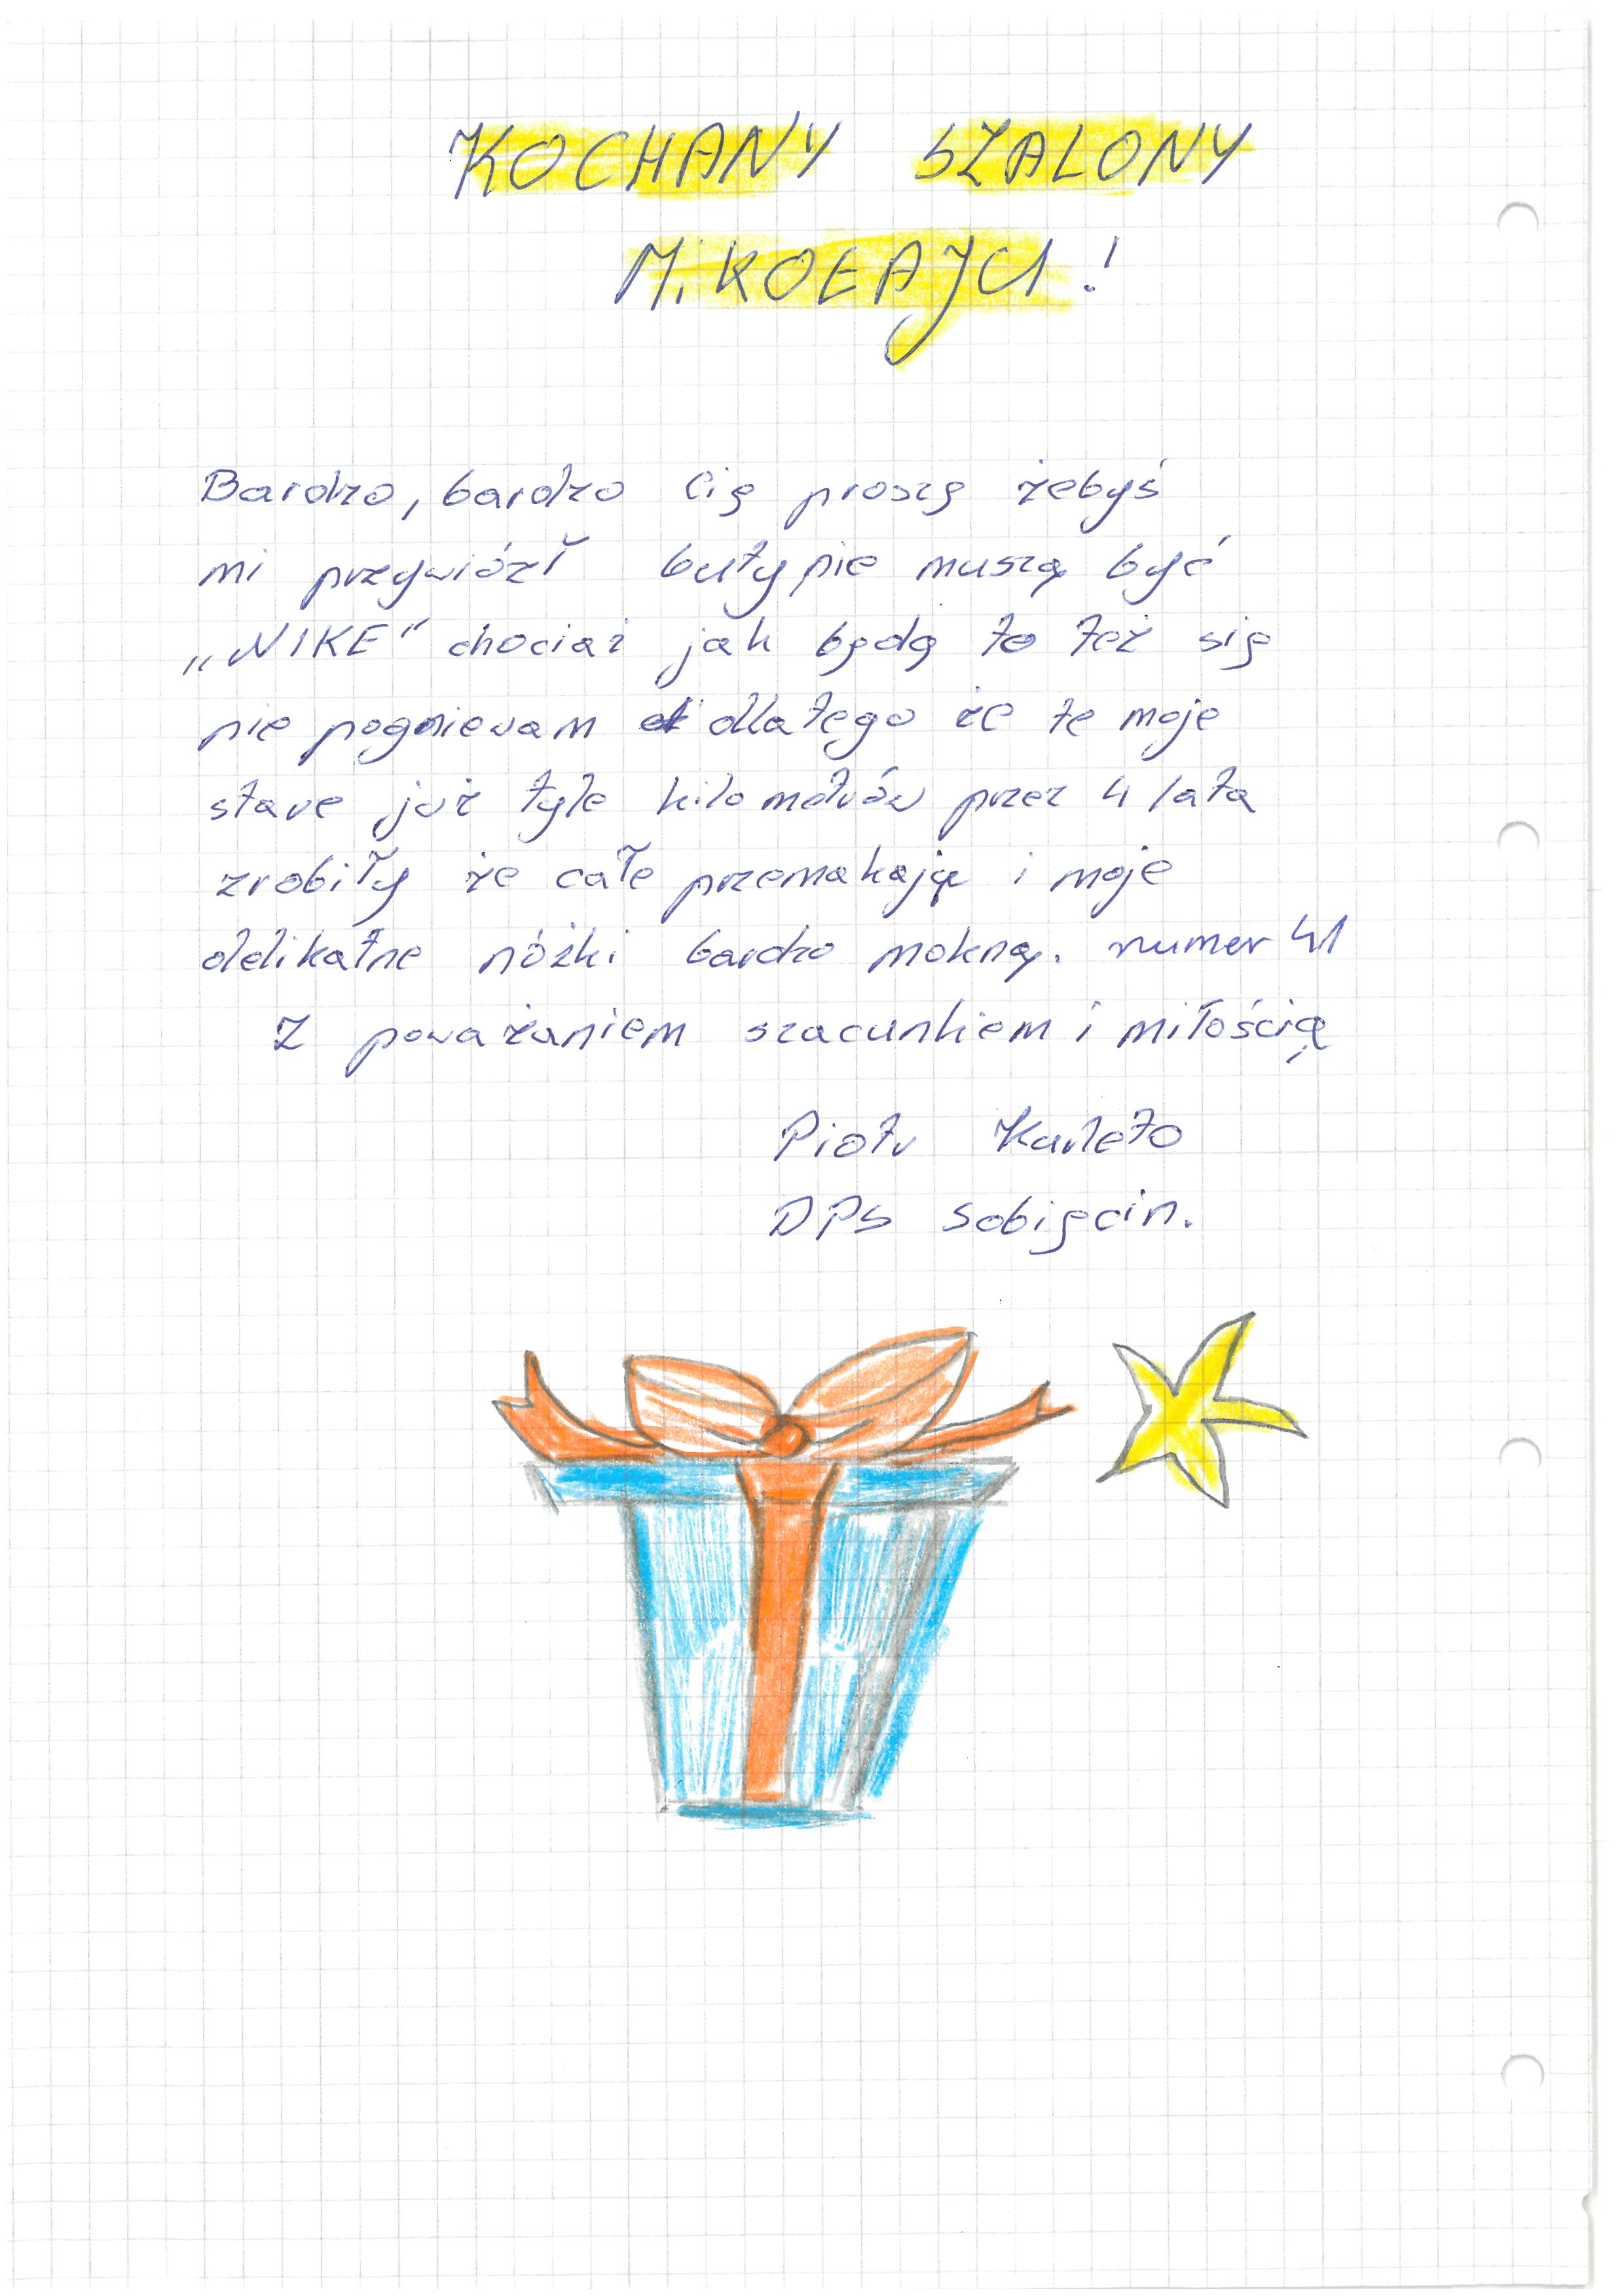 KOCHANY SZALONY
MiKOŁAJU!
Bardzo, bardzo Cię proszę żebyś
mi przywiózł buty, nie muszą być
„NIKE" chociaż jak będą to też się
nie pogniewam dlatego że te moje
stare już tyle kilometrów przez 4 lata
zrobiły że całe przemakają i moje
delikatne nóżki bardzo mokną. numer 41
Z poważaniem szacunkiem i miłością
Piotr
DPS Sobięcin.